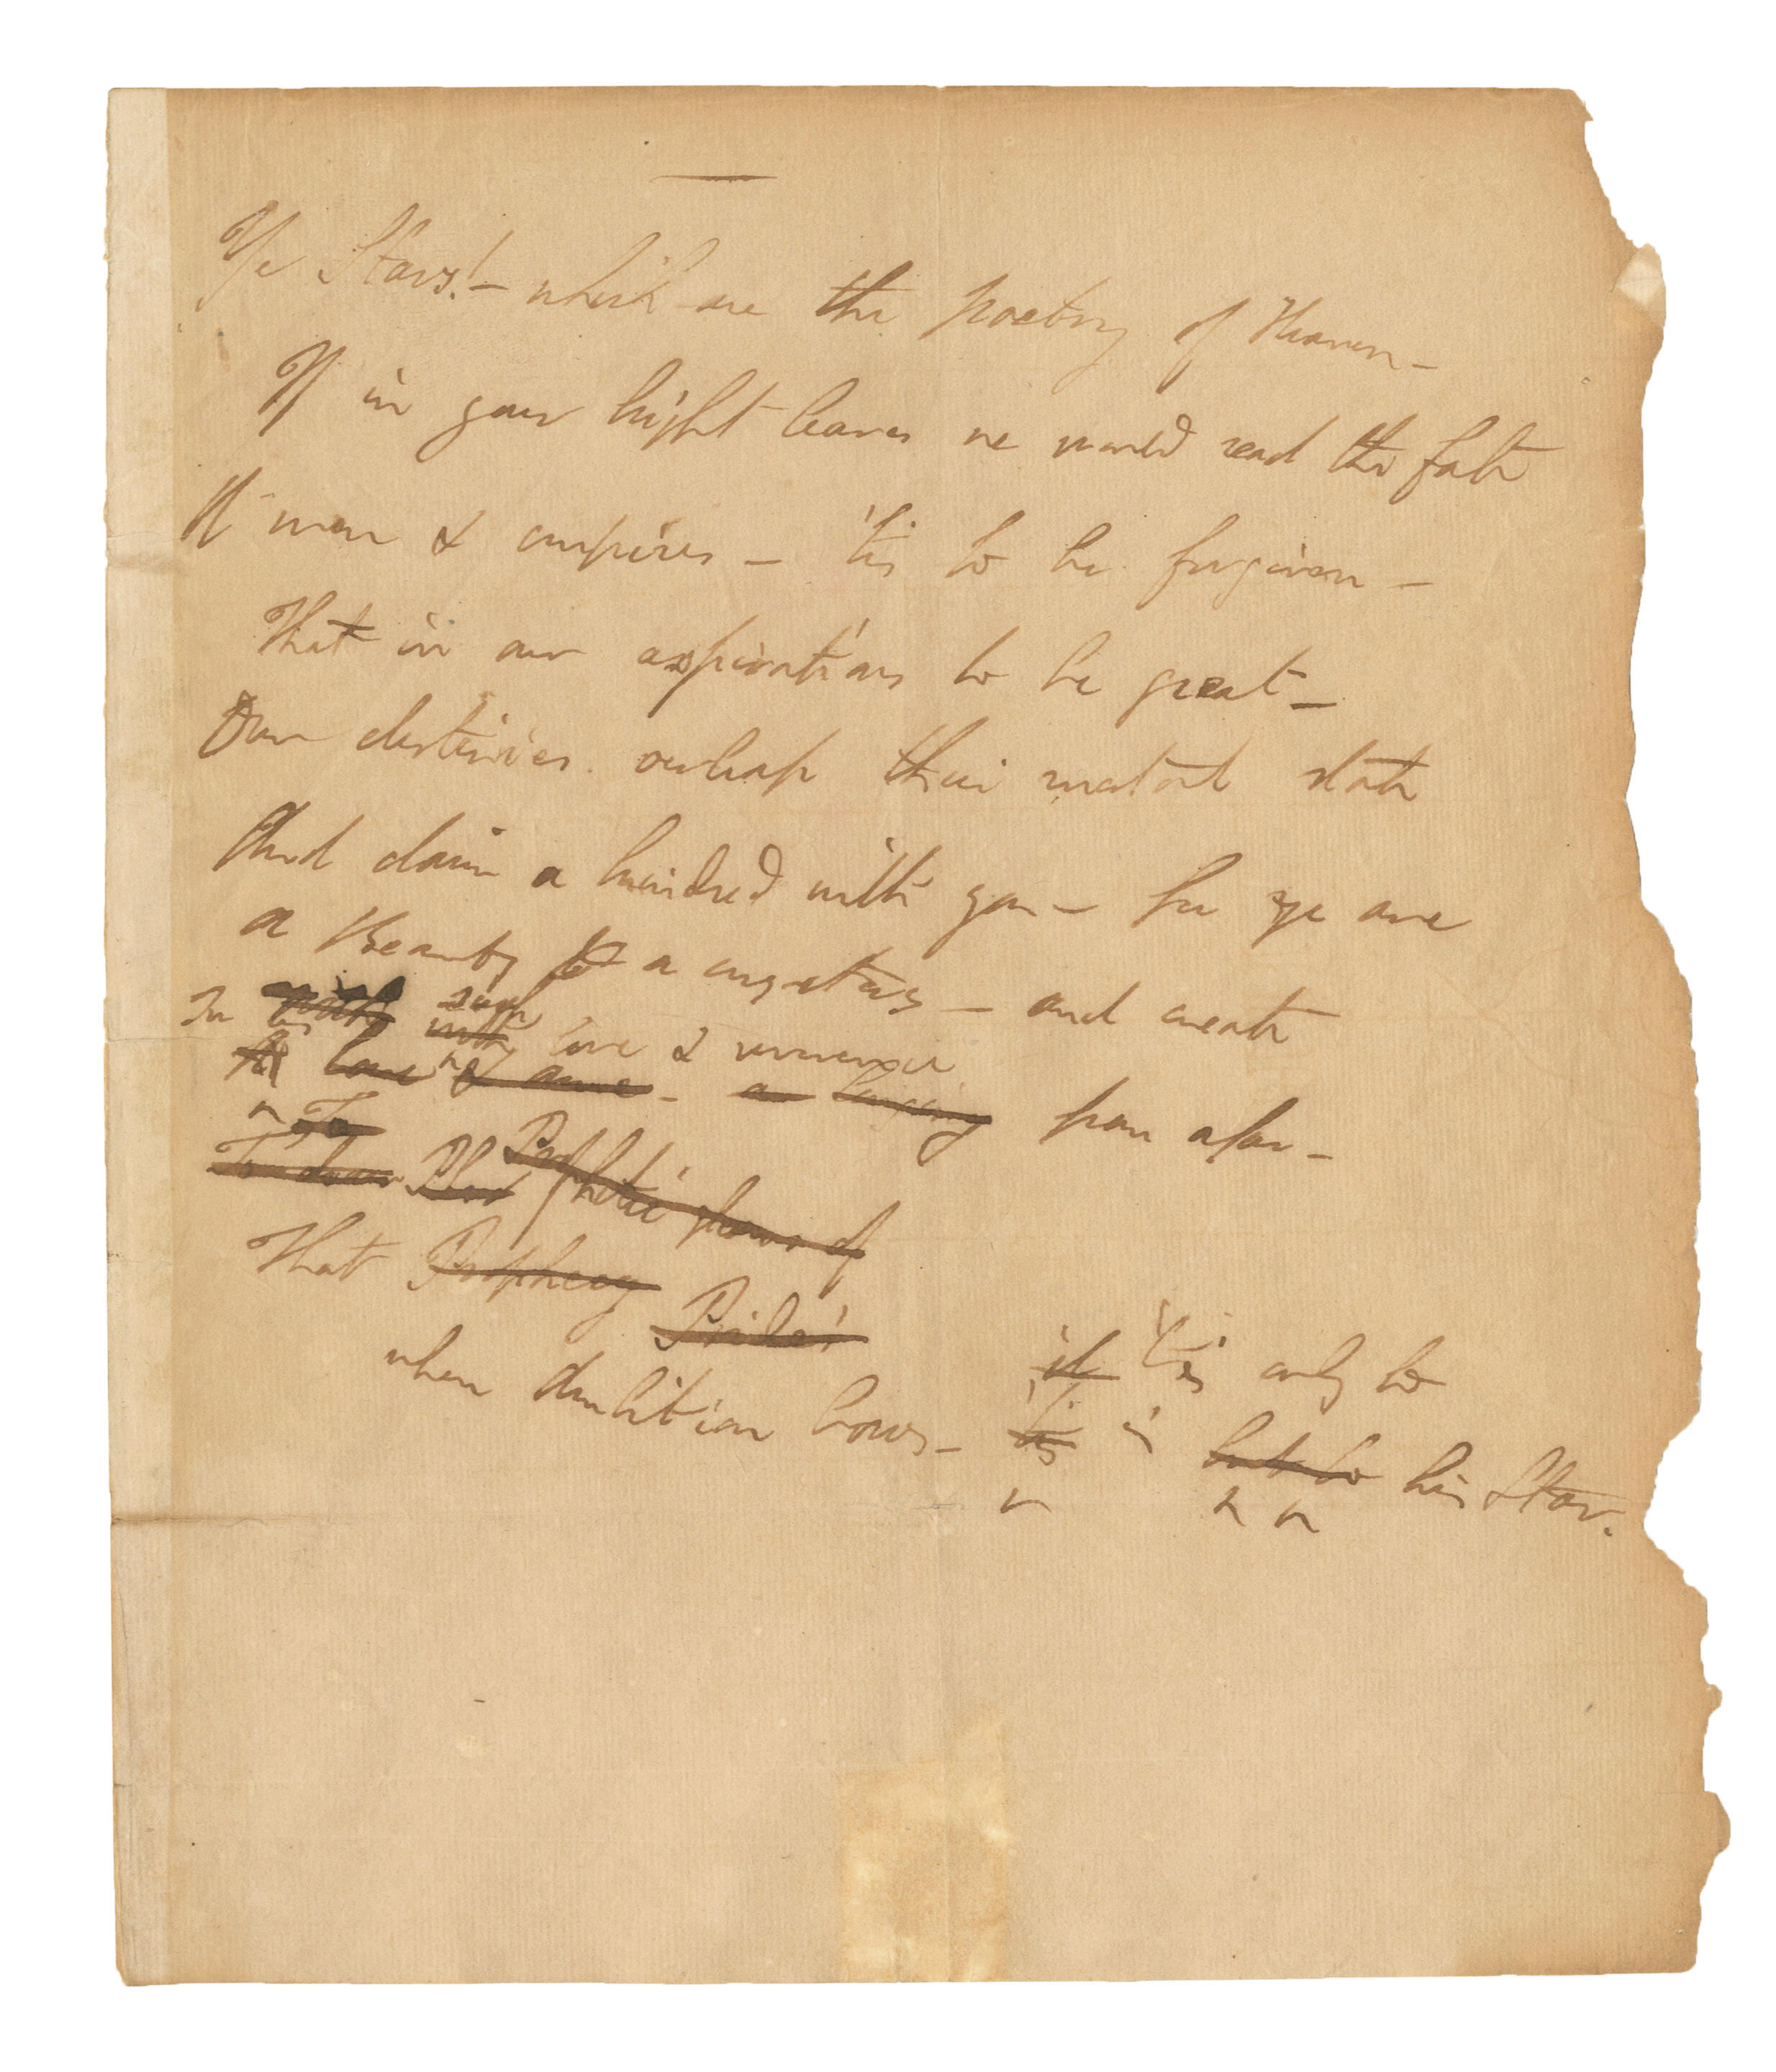 Ye Stars! – which are the poetry of Heaven –
If in your bright leaves we would read the fate
Of men & empires – 'tis to be forgiven –
That in our aspirations to be great –
Our destinies oerleap their mortal state
And claim a kindred with you – for ye are
a Beauty & a mystery – and create
In us such
with love & reverence
love & awe – a longing from afar –
To
Prophetic
of
That Prophecy
Pride's
it 'tis only to
when Ambition bows – 'tis is but to his Star.